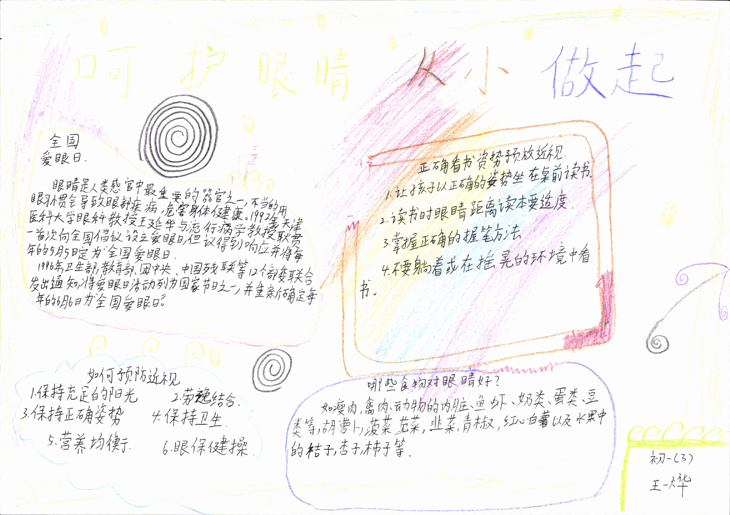 呵护眼睛从小做起
全国
爱眼日.
眼睛是人类感官中最重要的器官之一,不当的用
眼习惯会导致眼部疾病,危害身体健康。1992年天津
医科大学眼科教授王延华与流行病学教授耿贯
一首次向全国倡议设立爱眼日,但议得到响应并将每
年的5月5日定为"全国爱眼日.
1996年卫生部,教育部、团中央、中国残联等12个部委联合
发出通知,将爱眼日活动列为国家节日之一,并重新确定每
年的6月6日为"全国爱眼日?
正确看书姿势预放近视
1.让孩子以正确的姿势坐在桌前读书.
2.读书时眼睛距离读本要适度
3.掌握正确的握笔方法
4.不要躺着或在摇晃的环境中看
书.
如何预防近视
1.保持充足的阳光
2.劳逸结合.
3.保持正确姿势
4.保持卫生
5.营养均衡.
6.眼保健操.
哪些食物对眼睛好?
如瘦肉,禽肉、动物的内脏、鱼虾、奶类、蛋类、豆
类等,胡萝卜,菠菜,韭菜,青椒,红心白薯以及水果中
的桔子,杏子,柿子等.
初一(3)
王一烨